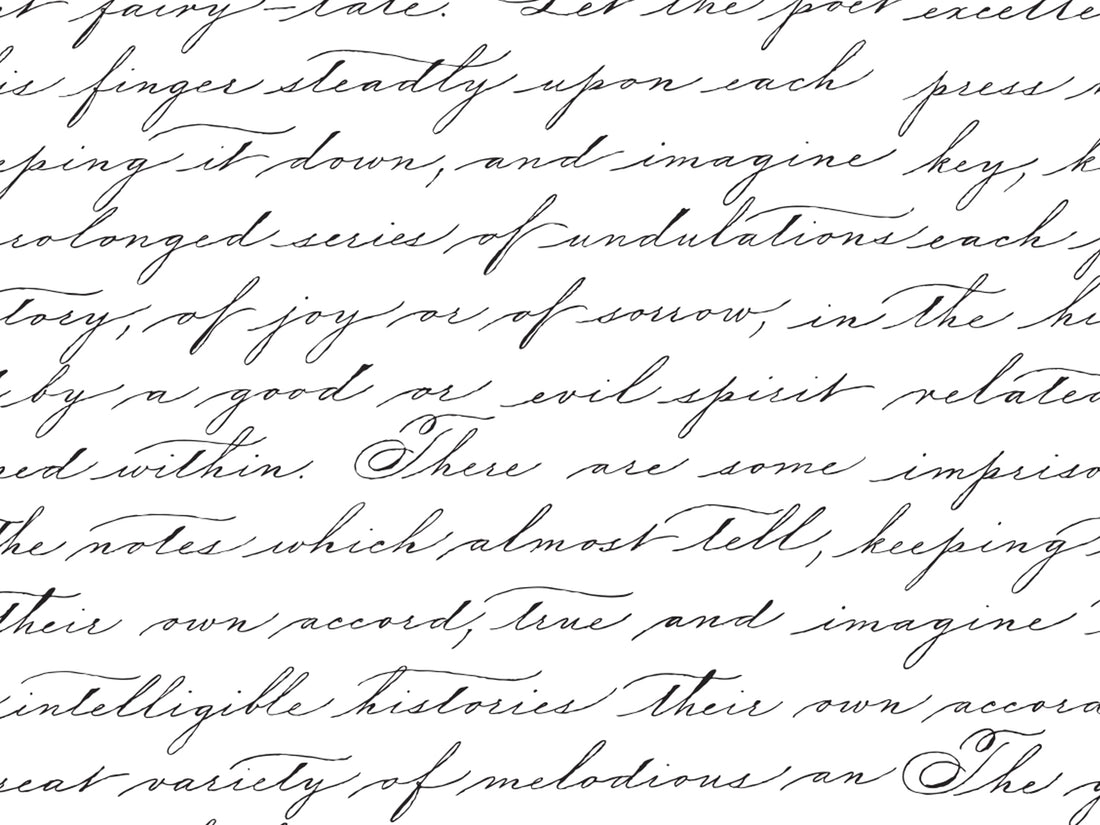 fairy-tale. Let the poet
his finger steadily upon each press
down, and imagine key,
series of undulations each
of joy or of sorrow, in the
by a good or evil spirit related
within. There are some
the notes which almost tell, keeping
their own accord, true and imagine
intelligible histories their own accord
variety of melodious an The